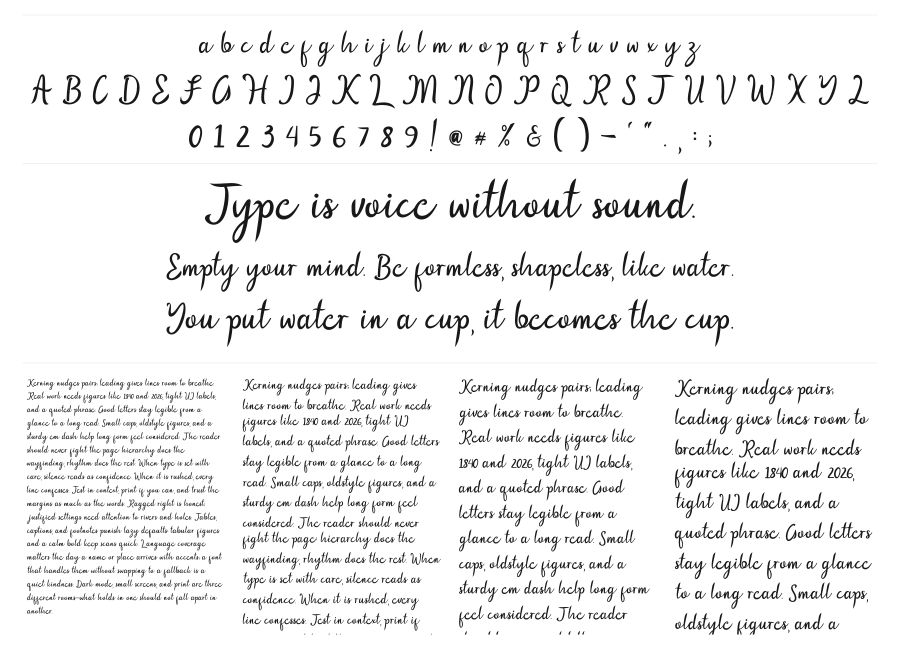 a b c d e f g h i j k l m n o p q r s t u v w x y z
A B C D E F G H I J K L M N O P Q R S T U V W X Y Z
0 1 2 3 4 5 6 7 8 9 ! @ # % & ( ) – ' " . , : ;
Type is voice without sound.
Empty your mind. Be formless, shapeless, like water.
You put water in a cup, it becomes the cup.
Kerning nudges pairs; leading gives lines room to breathe.
Real work needs figures like 1840 and 2026, tight UI labels,
and a quoted phrase. Good letters stay legible from a
glance to a long read. Small caps, oldstyle figures, and a
sturdy em dash help long form feel considered. The reader
should never fight the page hierarchy does the
wayfinding, rhythm does the rest. When type is set with
care, silence reads as confidence. When it is rushed, every
line confesses. Test in context, print if you can, and trust the
margins as much as the words. Ragged right is honest;
justified settings need attention to rivers and holes. Tables,
captions, and footnotes punish lazy defaults tabular figures
and a calm bold keep scans quick. Language coverage
matters the day a name or place arrives with accents a font
that handles them without swapping to a fallback is a
quiet kindness. Dark mode, small screens, and print are three
different rooms—what holds in one should not fall apart in
another.
Kerning nudges pairs; leading gives
lines room to breathe. Real work needs
figures like 1840 and 2026, tight UI
labels, and a quoted phrase. Good letters
stay legible from a glance to a long
read. Small caps, oldstyle figures, and a
sturdy em dash help long form feel
considered. The reader should never
fight the page hierarchy does the
wayfinding, rhythm does the rest. When
type is set with care, silence reads as
confidence. When it is rushed, every
line confesses. Test in context, print if
Kerning nudges pairs; leading
gives lines room to breathe.
Real work needs figures like
1840 and 2026, tight UI labels,
and a quoted phrase. Good
letters stay legible from a
glance to a long read. Small
caps, oldstyle figures, and a
sturdy em dash help long form
feel considered. The reader
Kerning nudges pairs;
leading gives lines room to
breathe. Real work needs
figures like 1840 and 2026,
tight UI labels, and a
quoted phrase. Good letters
stay legible from a glance
to a long read. Small caps,
oldstyle figures, and a